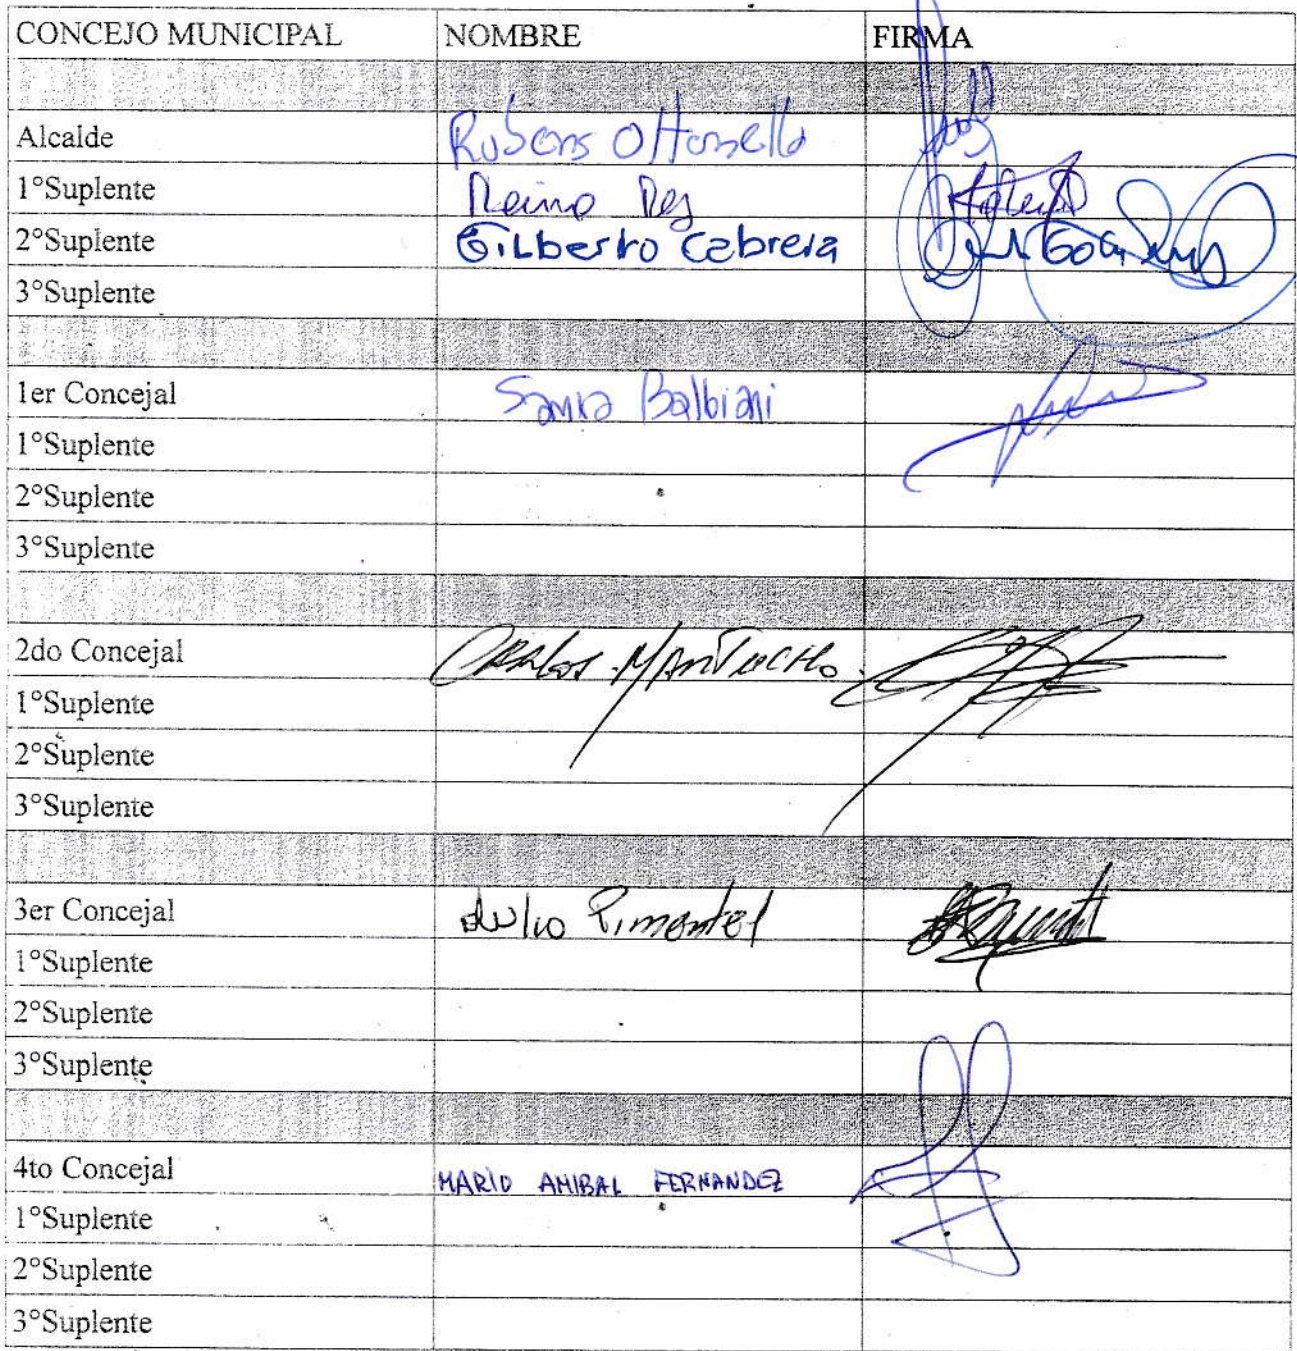 CONCEJO MUNICIPAL NOMBRE FIRMA
Alcalde Rubens Ottonello
1°Suplente
2°Suplente Gilberto Cabrera
3°Suplente
1er Concejal Samra Balbiani
1°Suplente
2°Suplente
3°Suplente
2do Concejal Carlos Mantuccho
1°Suplente
2°Suplente
3°Suplente
3er Concejal Julio Pimentel
1°Suplente
2°Suplente
3°Suplente
4to Concejal MARIO ANIBAL FERNANDEZ
1°Suplente
2°Suplente
3°Suplente